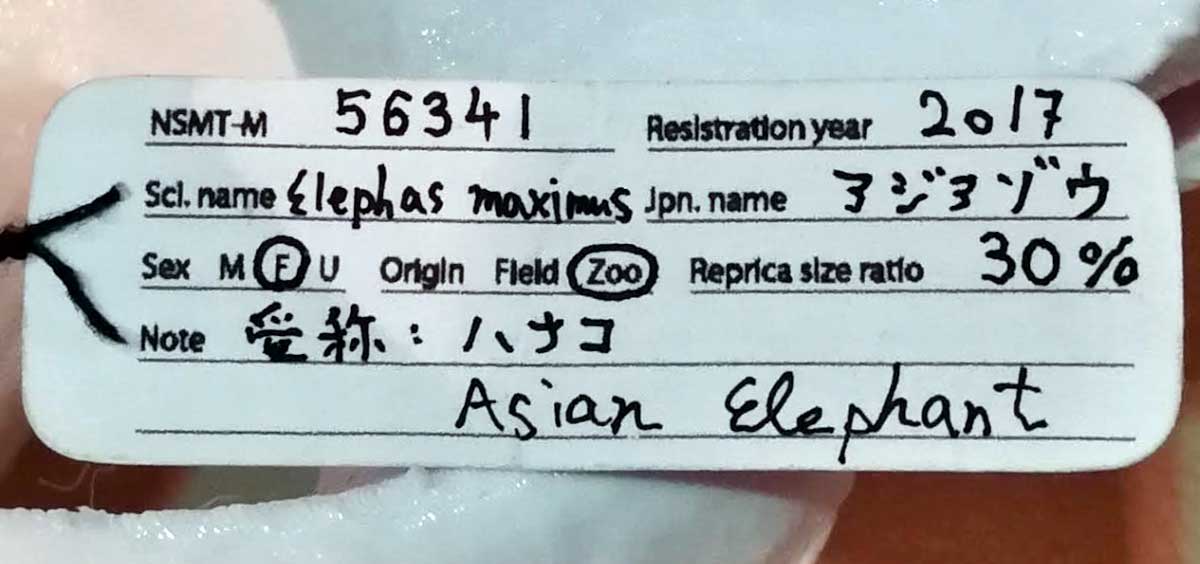 NSMT-M 56341 Resistration year 2017
Sci. name Elephas maximus Jpn. name アジアゾウ
Sex M F U Origin Field Zoo Reprica size ratio 30%
Note 愛称：ハナコ
Asian Elephant